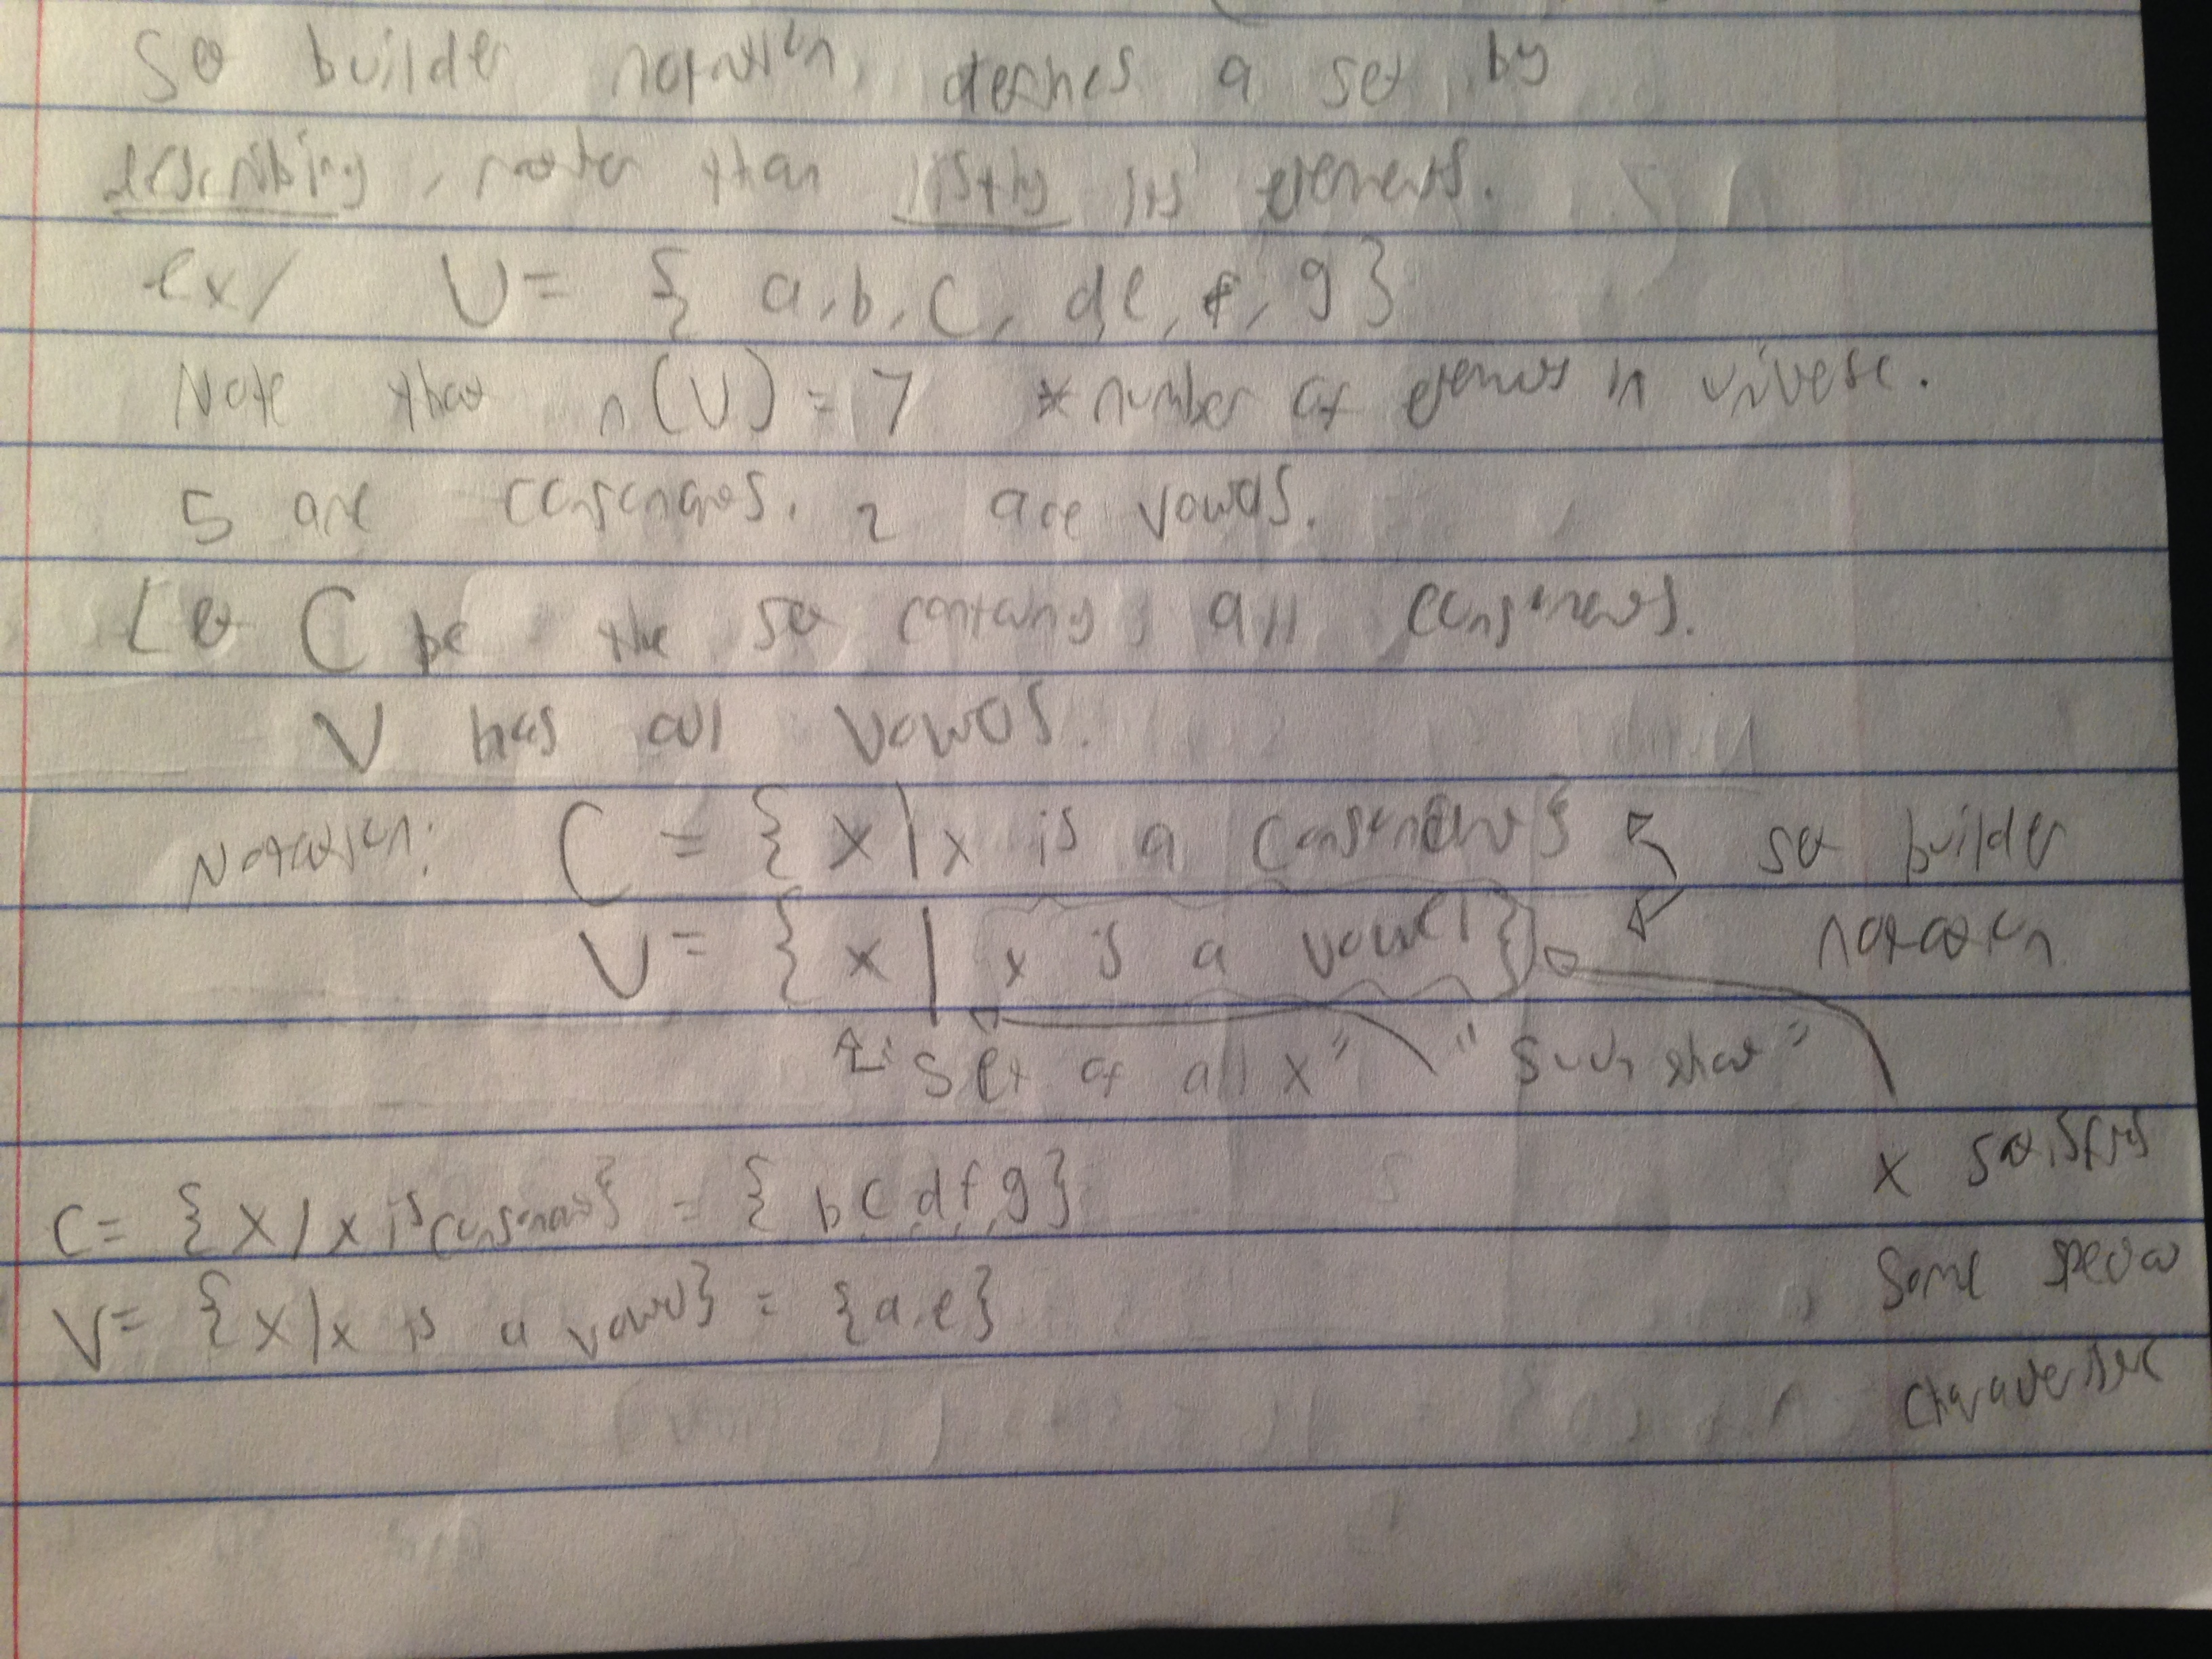 Set builder notation, defines a set by
describing, rather than listing its elements.
ex/ U = { a, b, c, d, e, f, g }
Note that n(U) = 7 * number of elements in universe.
5 are consonants. 2 are vowels.
Let C be the set containing all consonants.
V has all vowels.
Notation: C = { x | x is a consonant } set builder
V = { x | x is a vowel } notation
"Set of all x" "such that"
x satisfies
C = { x / x is consonant } = { b, c, d, f, g }
some special
V = { x | x is a vowel } = { a, e }
characteristic